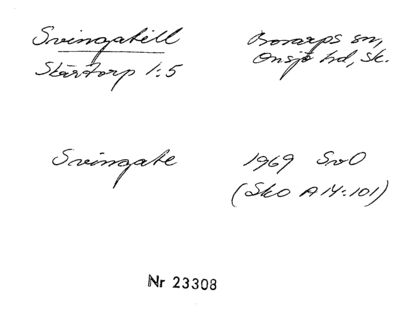 Svingatill
Skärtorp 1:5
Bosarps sn,
Onsjö hd, Sk.
Svingate
1969 SvO
(Sko A14:101)
Nr 23308